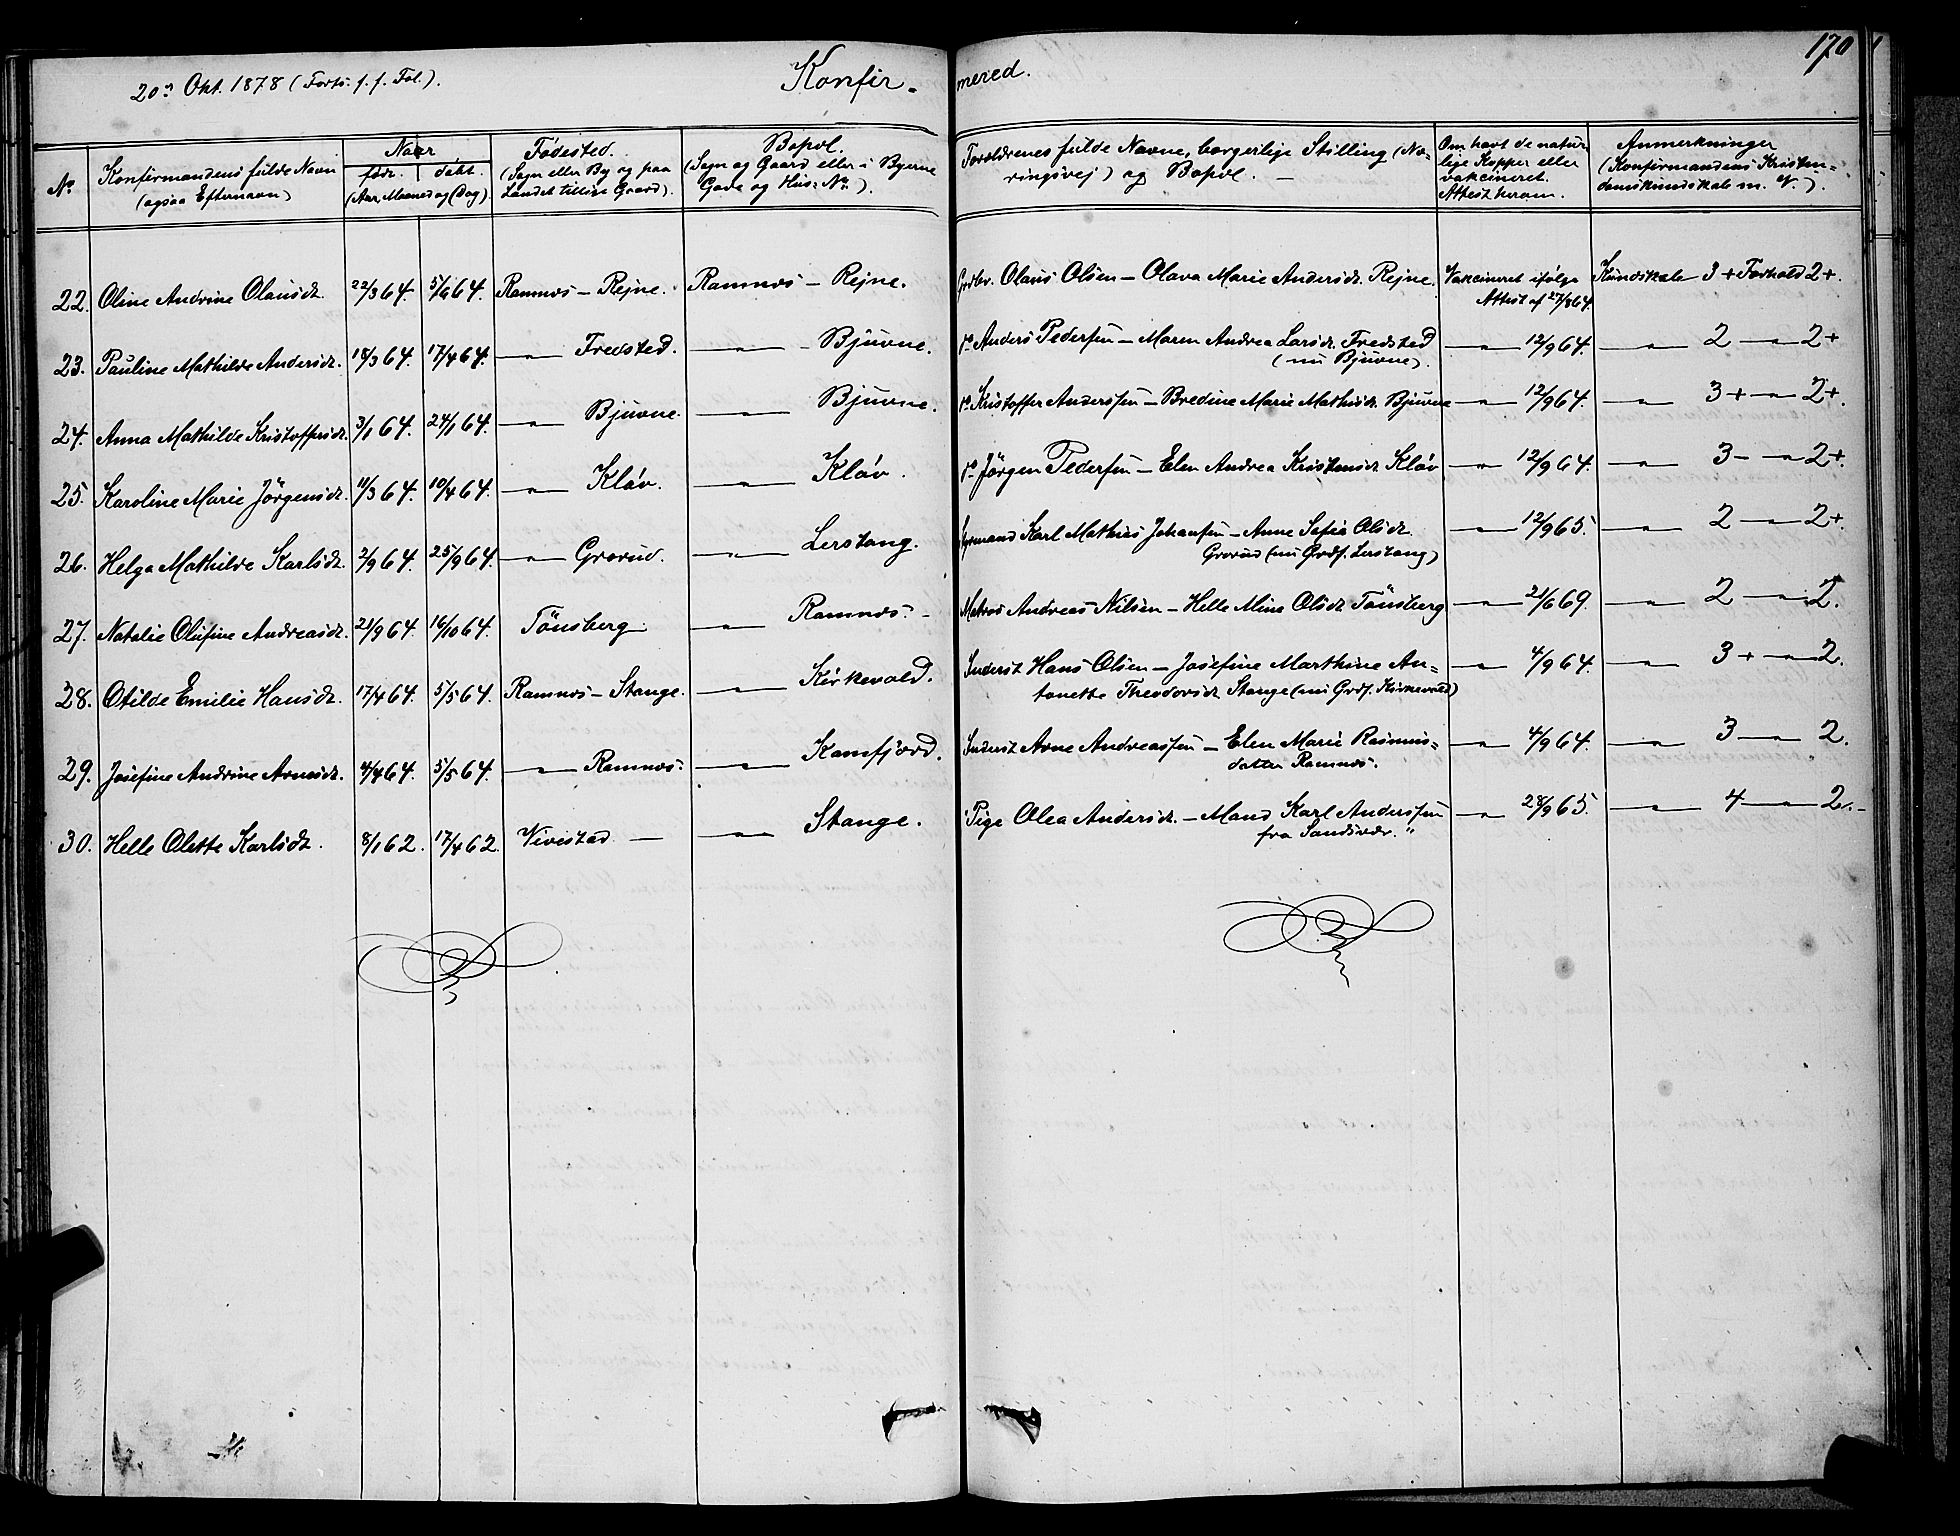 170
20de Okt. 1878 (Forts. f. f. Fol.).
Konfir-
mered.
No.
Konfirmandens fulde Navn
(ogsaa Efternavn)
Naar
født. døbt.
(Aar, Maaned og Dag)
Fødested.
(Sogn eller By og paa
Landet tillige Gaard).
Bopæl.
(Sogn og Gaard eller i Byerne
Gade og Hus: No.).
Forældrenes fulde Navne, borgerlige Stilling (Næ-
ringsvej) og Bopæl. —
Om havt de natur-
lige Kopper eller
vakcineret.
Attest herom.
Anmerkninger
(Konfirmandens Kristen-
domskundskab m. v.).
22. Oline Andrine Olausdt. 22/3 64. 5/6 64. Ramnæs — Rejne. Ramnæs — Rejne. Grdbr. Olaus Olsen — Olava Marie Andersdt. Rejne. Vakcineret ifølge Kundskab 3+ Forhold 2+.
Attest af 27/8 64.
23. Pauline Mathilde Andersdt. 18/3 64. 17/4 64. — " — Fredsted. — " — Bjuvne. do Anders Pedersen — Maren Andrea Larsdt. Fredsted — " — 12/9 64. — " — 2 — " — 2+
(nu Bjuvne).
24. Anna Mathilde Kristoffersdt. 3/1 64. 24/1 64. — " — Bjuvne. — " — Bjuvne. do Kristoffer Anderssen — Bredine Marie Mathisdt. Bjuvne — " — 12/9 64. — " — 3+ — " — 2+.
25. Karoline Marie Jörgensdt. 11/3 64. 10/4 64. — " — Kláv. — " — Kláv. do Jörgen Pedersen — Elen Andrea Kristensdt. Kláv — " — 12/9 64. — " — 3- — " — 2+.
26. Helga Mathilde Karlsdt. 2/9 64. 25/9 64. — " — Grorud. — " — Lerstang. Karl Mathias Johansen — Anne Sofia Olsdt. — " — 12/9 65. — " — 2 — " — 2+.
Grorud (nu Grdf. Lerstang)
27. Natalie Olufine Andreasdt. 21/9 64. 16/10 64. Tönsberg. — " — Ramnæs. — Matros Andreas Nilsen — Helle Aline Olsdt. Tönsberg — " — 21/6 69. — " — 2 — " — 2.
28. Otilde Emilie Hansdt. 17/4 64. 5/5 64. Ramnæs — Stange. — " — Kirkevold. Inderst Hans Olsen — Josefine Marthine An- — " — 4/9 64. — " — 3+ — " — 2.
tonette Theodorsdt. Stange (nu Grdf. Kirkevold)
29. Josefine Andrine Arnesdt. 4/4 64. 5/5 64. — " — Ramnæs. — " — Kamfjord. Inderst Arne Andreassen — Elen Marie Rasmus- — " — 4/9 64. — " — 3 — " — 2.
datter Ramnæs.
30. Helle Olette Karlsdt. 8/1 62. 17/4 62. Vivestad — — " — Stange. Pige Olea Andersdt. — Mand Karl Anderssen — " — 28/9 65. — " — 4 — " — 2. -
fra Sandsvær. "